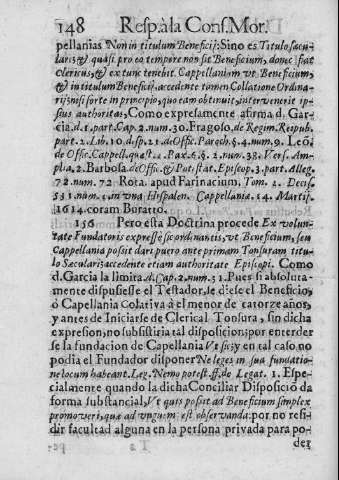 148 Resp. à la Cons. Mor.
pellanias Non in titulum Beneficij: Sino es Titulo sæcu-
laris, & quasi pro eo tempore non sit Beneficium, donec fiat
clericus, & ex tunc tenebit Cappellaniam vt Beneficium,
& in titulum Beneficij, accedente tamen Collatione Ordina-
rij; nisi forte in principio, quo eam obtinuit, intervenerit ip-
sius authoritas, Como expresamente afirma d. Gar-
cia. d. 1. part. Cap. 2. num. 30. Fragoso. de Regim. Reipub.
part. 2. Lib. 10. disp. 21. de Offic. Paroch. §. 4. num. 9. Leo.
de Offic. Cappell. quæst. 2. num. 38. Vers. Am-
plia. 2. Barbosa. de Offic. & Potestat. Episcop. 3. part. Alleg.
72. num. 72 Rota. apud Farinacium, Tom. 2. Decis.
531. num. 2. in vna Hispalen. Cappellania. 14. Martij.
1614. coram Buratto.
156 Pero esta Doctrina procede Ex volun-
tate Fundatoris expresse sic ordinantis, vt Beneficium, seu
Cappellania possit dari puero ante primam Tonsuram titu-
lo Sæculari: accedente etiam authoritate Episcopi. Como
d. Garcia la limita. d. Cap. 2. num. 31. Pues si absoluta-
mente dispusiesse el Testador, se diese el Beneficio,
ò Capellania Colativa à el menor de catorze años,
y antes de Iniciarse de Clerical Tonsura, sin dicha
expresion, no subsistiria tal disposicion; por entender
se la fundacion de Capellania Vt sic; y en tal caso no
podia el Fundador disponer Ne leges in sua fundatio-
ne locum habeant. Leg. Nemo potest. ff. de Legat. 1. Espe-
cialmente quando la dicha Conciliar Disposiciõ da
forma substancial, Vt quis possit ad Beneficium simplex
promoveri, quæ ad vnguem est observanda: por no resi-
dir facultad alguna en la persona privada para po-
der